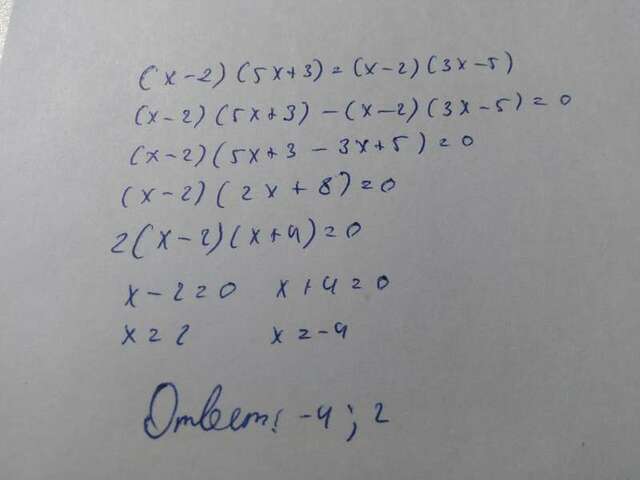 (x-2)(5x+3)=(x-2)(3x-5)
(x-2)(5x+3)-(x-2)(3x-5)=0
(x-2)(5x+3-3x+5)=0
(x-2)(2x+8)=0
2(x-2)(x+4)=0
x-2=0 x+4=0
x=2 x=-4
Ответ: -4; 2